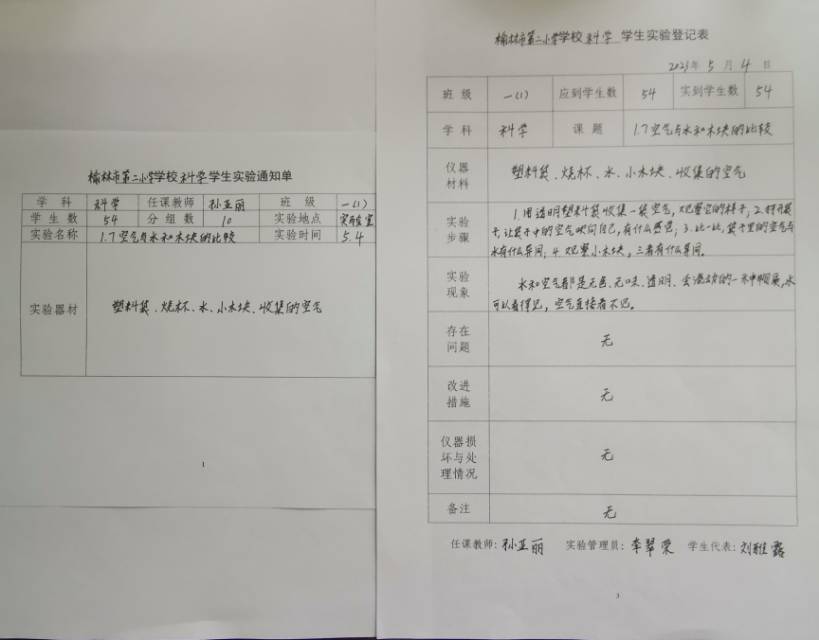 榆林市第二小学学校科学学生实验通知单
学 科 科学 任课教师 孙亚丽 班 级 一(1)
学 生 数 54 分 组 数 10 实验地点 实验室
实验名称 1.7空气与水和木块的比较 实验时间 5.4
实验器材 塑料袋、烧杯、水、小木块、收集的空气
1
榆林市第二小学学校科学 学生实验登记表
2023年 5 月 4 日
班 级 一(1) 应到学生数 54 实到学生数 54
学 科 科学 课 题 1.7空气与水和木块的比较
仪器
材料
塑料袋、烧杯、水、小木块、收集的空气
实验
步骤
1.用透明塑料袋收集一袋空气,观察它的样子;2.打开袋
子,让袋子中的空气吹向自己,有什么感觉;3.比一比,袋子里的空气与
水有什么异同;4.观察小木块,三者有什么异同。
实验
现象
水和空气都是无色、无味、透明、会流动的一种物质,水
可以看得见,空气直接看不见。
存在
问题
无
改进
措施
无
仪器损
坏与处
理情况
无
备注 无
任课教师:孙亚丽 实验管理员:李翠荣 学生代表:刘雅露
3